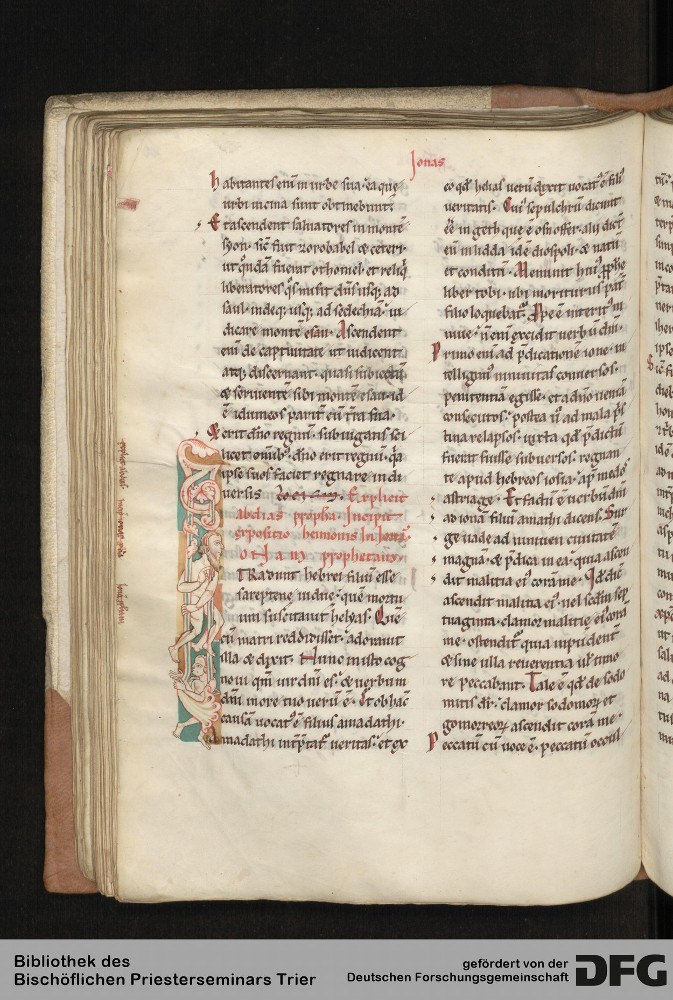 Jonas
habitantes eni in urbe sua. ea que
urbi uicina sunt obtinebunt.
Et ascendent saluatores in monte
syon. sic fuit zorobabel & ceteri.
ut qonda fuerat othoniel. et reliq
liberatores qs misit dns usq; ad
saul. indeq; usq; ad sedechia. iu
dicare monte esau. Ascendent
eni de captiuitate ut iudicent
atq; discernant. quasi subiectu
& seruiente sibi monte esau. id
e idumeos parit cu tra sua.
Et erit dno regnu. subiugatis sci
licet omib; dno erit regnu. qa
ipse suos faciet regnare in di
uersis Explicit
abdias ppheta. Incipit
expositio heimonis In Iona
prophetam.
TRadunt hebrei filiu esse
sareptene uidue. que mortu
um suscitauit helyas. Que
cu matri reddidisset. adorauit
illa & dixit. Nunc in isto cog
noui qm uir dni es. & uerbum
dni in ore tuo ueru e. Et ob hac
causa uocat e filius amadathi.
amadathi intptat ueritas. et ex
eo qd helias ueru dixit uocat e fili
ueritatis. Cui sepulchru dicunt
ee in geth que e ofri offer. alii dict
eu in lidda. ide diospoli. & natu
et conditu. Meminit hui pphe
liber tobi. ubi moriturus pat
filio loquebat. Ppe e interit ni
niue. n eni excidit uerbu dni.
Primo eni ad pdicatione ione. in
telligim niniuitas conuersos.
penitentia egisse. et a dno uenia
consecutos. postea u ad mala pis
tina relapsos. iuxta qd pdictu
fuerat fuisse subuersos. regnan
te apud hebreos iosia. ap medos
astriage. Et factu e uerbu dni
ad iona filiu amathi dicens. Sur
ge uade ad niniuen ciuitate
magna. & pdica in ea. quia ascen
dit malitia ei cora me. Id dict
ascendit malitia ei. uel scdm sep
tuaginta. clamor malitie ei cora
me. ostendit quia inpudent
& sine ulla reuerentia ul timo
re peccabant. Tale e qd de sodo
mitis dr. clamor sodomor et
gomorreor ascendit cora me.
Peccatu cu uoce e. peccatu occul
Bibliothek des
Bischöflichen Priesterseminars Trier
gefördert von der
Deutschen Forschungsgemeinschaft
DFG